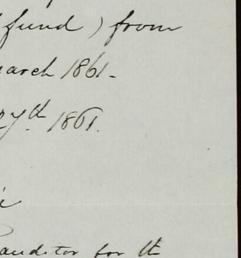 fund) from
March 1861-
27th 1861.
auditor for th